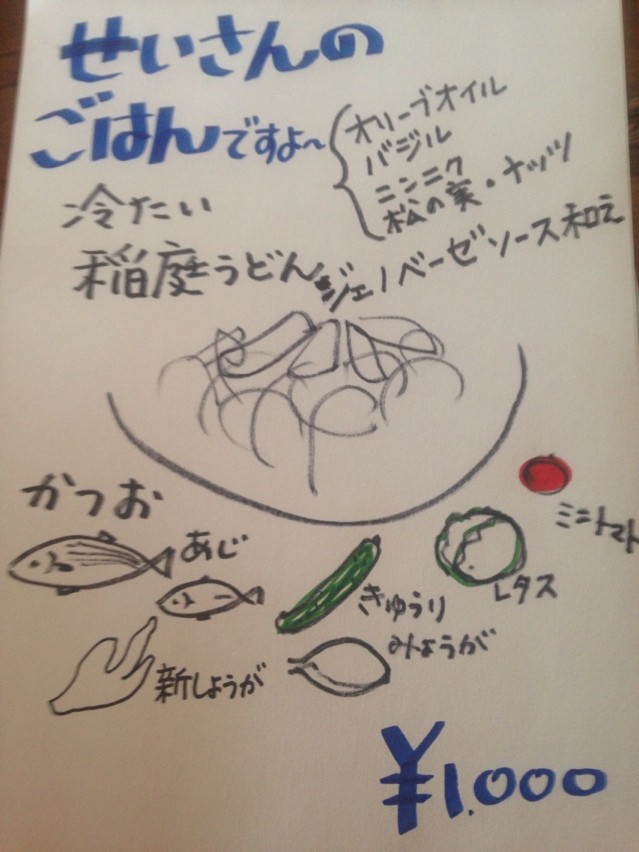 せいさんの
ごはんですよ~
オリーブオイル
バジル
ニンニク
松の実・ナッツ
冷たい
稲庭うどん
ジェノベーゼソース和え
かつお
あじ
ミニトマト
レタス
きゅうり
みょうが
新しょうが
¥1.000